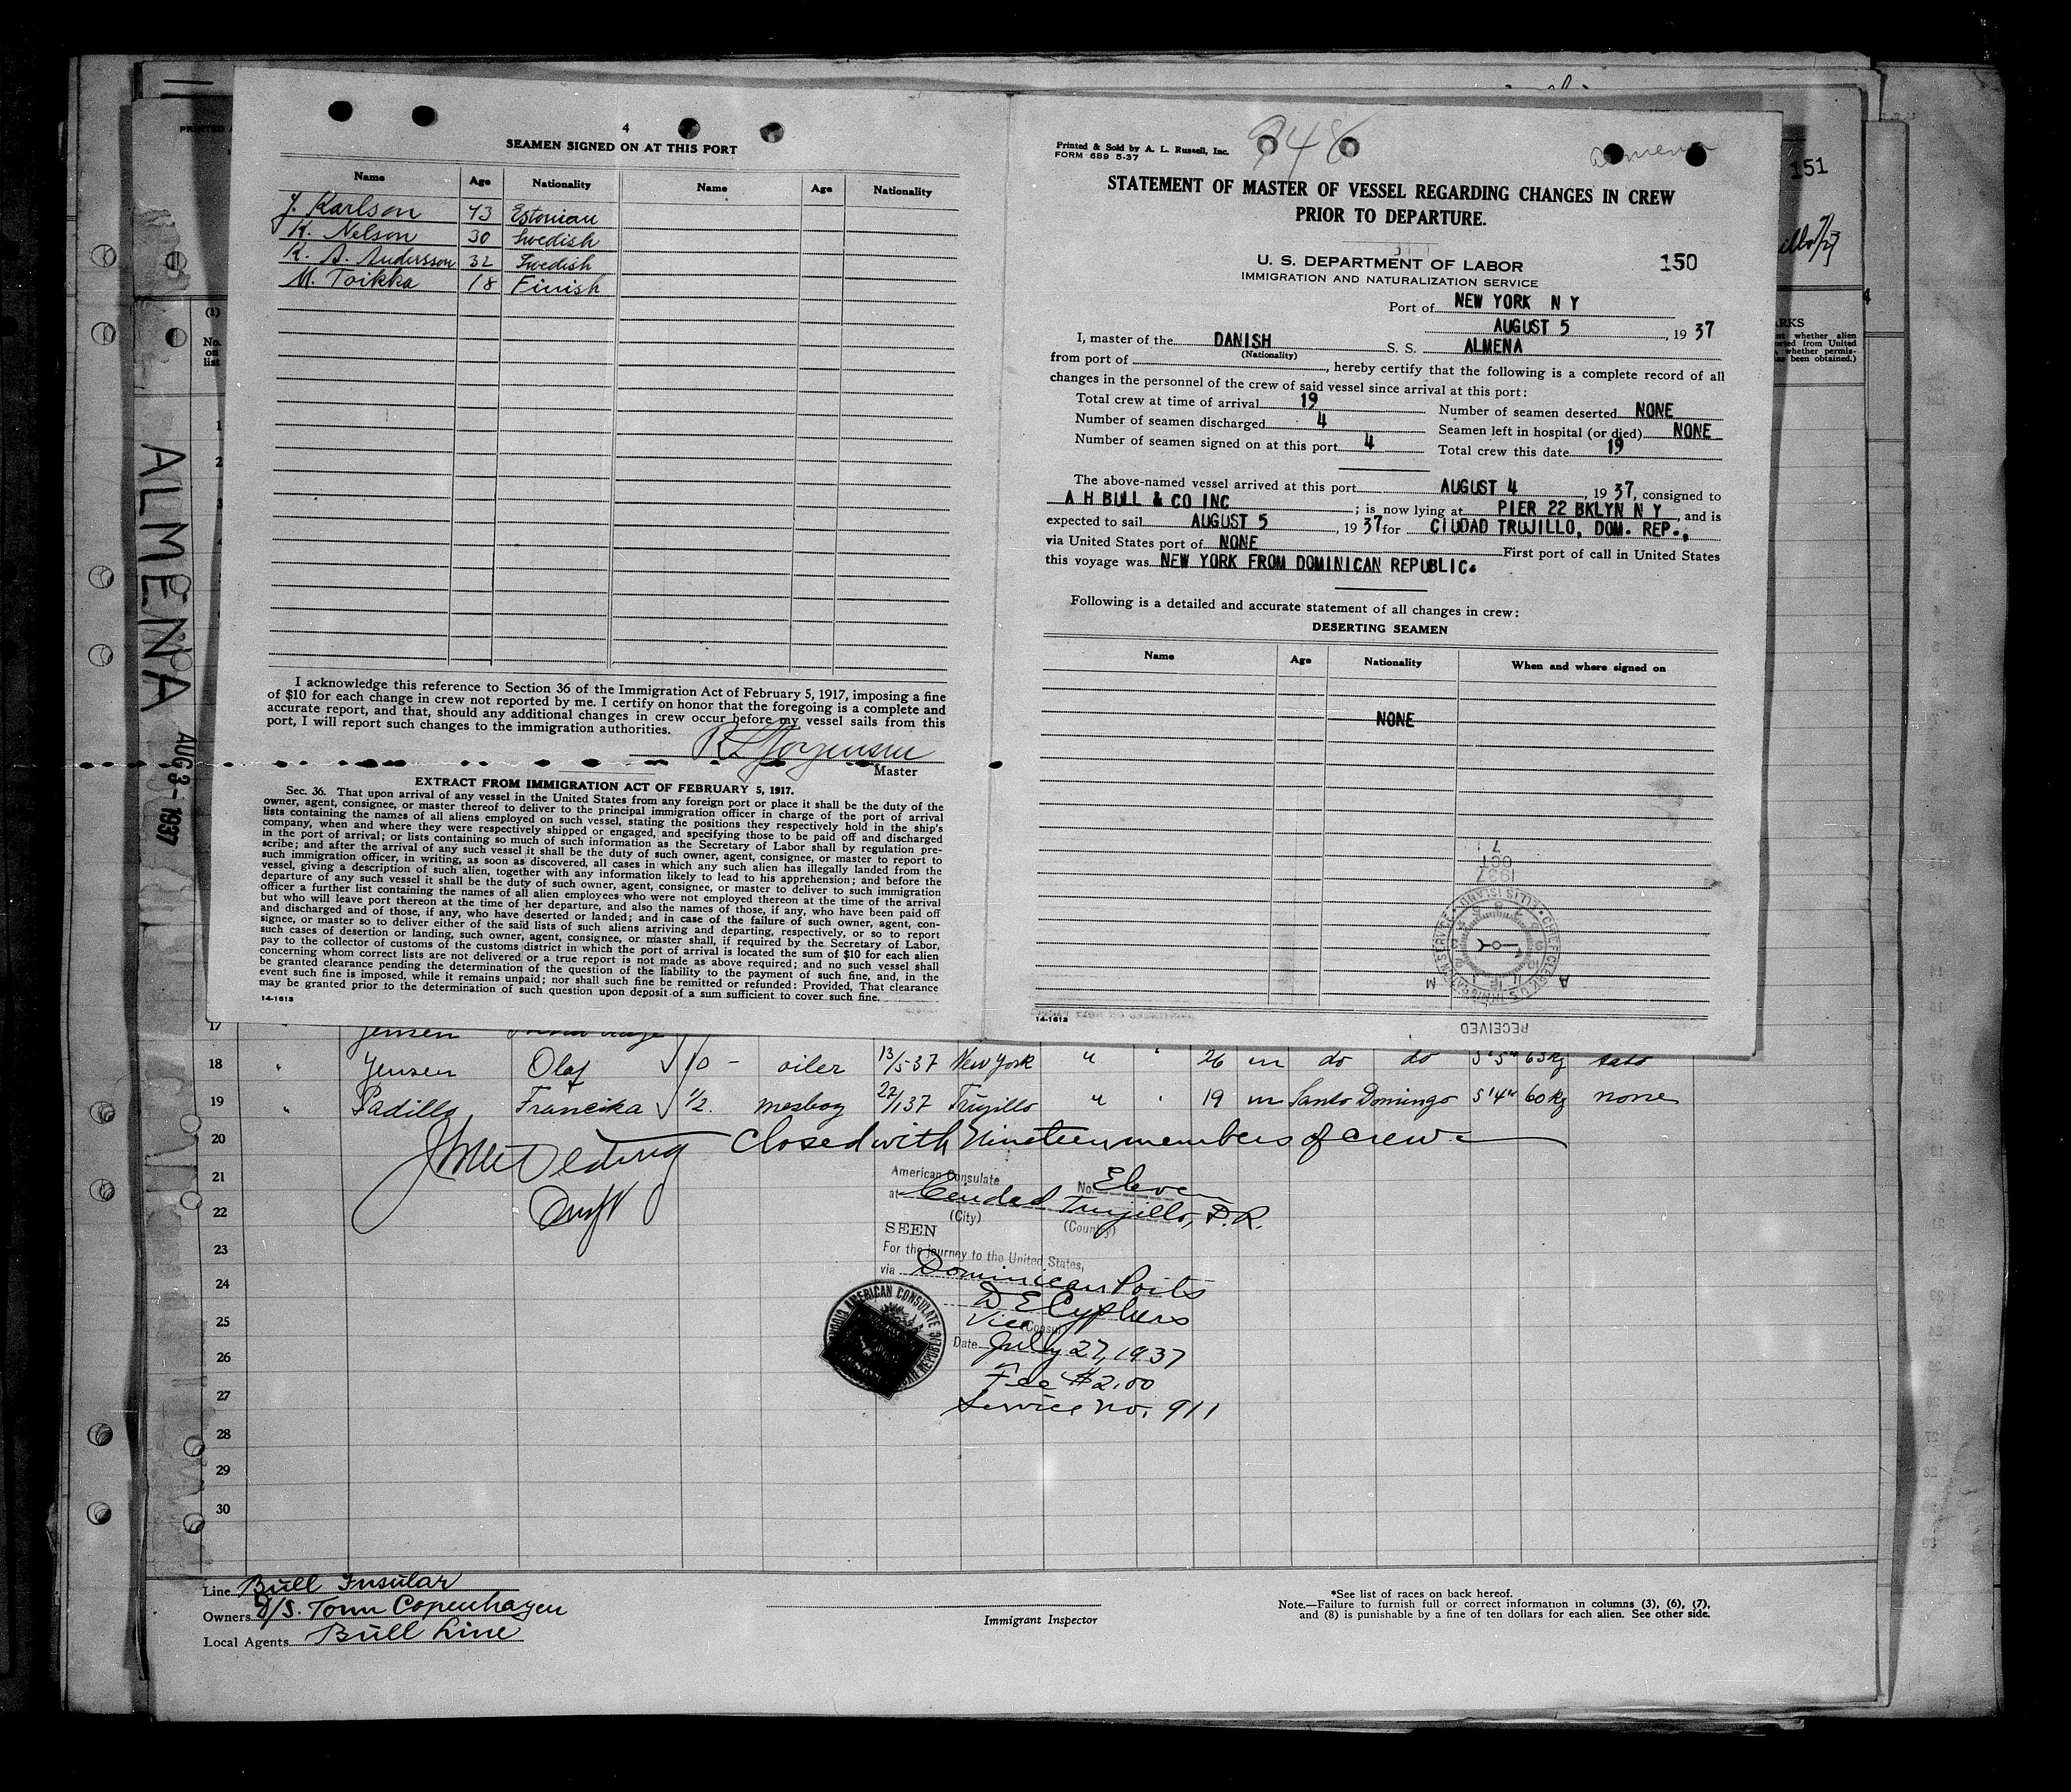 4
SEAMEN SIGNED ON AT THIS PORT
Name Age Nationality Name Age Nationality
J. Karlson 43 Estonian
K. Nelson 30 Swedish
K. A. Andersson 32 Swedish
M. Toikka 18 Finish
I acknowledge this reference to Section 36 of the Immigration Act of February 5, 1917, imposing a fine
of $10 for each change in crew not reported by me. I certify on honor that the foregoing is a complete and
accurate report, and that, should any additional changes in crew occur before my vessel sails from this
port, I will report such changes to the immigration authorities.
Master
EXTRACT FROM IMMIGRATION ACT OF FEBRUARY 5, 1917.
Sec. 36. That upon arrival of any vessel in the United States from any foreign port or place it shall be the duty of the
owner, agent, consignee, or master thereof to deliver to the principal immigration officer in charge of the port of arrival
lists containing the names of all aliens employed on such vessel, stating the positions they respectively hold in the ship's
company, when and where they were respectively shipped or engaged, and specifying those to be paid off and discharged
in the port of arrival; or lists containing so much of such information as the Secretary of Labor shall by regulation pre-
scribe; and after the arrival of any such vessel it shall be the duty of such owner, agent, consignee, or master to report to
such immigration officer, in writing, as soon as discovered, all cases in which any such alien has illegally landed from the
vessel, giving a description of such alien, together with any information likely to lead to his apprehension; and before the
departure of any such vessel it shall be the duty of such owner, agent, consignee, or master to deliver to such immigration
officer a further list containing the names of all alien employees who were not employed thereon at the time of the arrival
but who will leave port thereon at the time of her departure, and also the names of those, if any, who have been paid off
and discharged and of those, if any, who have deserted or landed; and in case of the failure of such owner, agent, con-
signee, or master so to deliver either of the said lists of such aliens arriving and departing, respectively, or so to report
such cases of desertion or landing, such owner, agent, consignee, or master shall, if required by the Secretary of Labor,
pay to the collector of customs of the customs district in which the port of arrival is located the sum of $10 for each alien
concerning whom correct lists are not delivered or a true report is not made as above required; and no such vessel shall
be granted clearance pending the determination of the question of the liability to the payment of such fine, and, in the
event such fine is imposed, while it remains unpaid; nor shall such fine be remitted or refunded: Provided, That clearance
may be granted prior to the determination of such question upon deposit of a sum sufficient to cover such fine.
14-1613
Printed & Sold by A. L. Russell, Inc.
FORM 689 5-37
946
Almena
STATEMENT OF MASTER OF VESSEL REGARDING CHANGES IN CREW
PRIOR TO DEPARTURE.
U. S. DEPARTMENT OF LABOR
150
IMMIGRATION AND NATURALIZATION SERVICE
Port of NEW YORK N Y
AUGUST 5, 1937
I, master of the DANISH S. S. ALMENA
(Nationality)
from port of , hereby certify that the following is a complete record of all
changes in the personnel of the crew of said vessel since arrival at this port:
Total crew at time of arrival 19 Number of seamen deserted NONE
Number of seamen discharged 4 Seamen left in hospital (or died) NONE
Number of seamen signed on at this port 4 Total crew this date 19
The above-named vessel arrived at this port AUGUST 4, 1937, consigned to
A H BULL & CO INC ; is now lying at PIER 22 BKLYN N Y, and is
expected to sail AUGUST 5, 1937 for CIUDAD TRUJILLO, DOM. REP.,
via United States port of NONE First port of call in United States
this voyage was NEW YORK FROM DOMINICAN REPUBLIC.
Following is a detailed and accurate statement of all changes in crew:
DESERTING SEAMEN
Name Age Nationality When and where signed on
NONE
1937
OCT
RECEIVED
14-1613
151
(1)
No.
on
list
ALMENA
AUG 3 - 1937
17 Jensen
18 " Jensen Olaf 10 - oiler 13/5-37 New York " " 26 m do do 5'5" 63kg tato
19 " Padillo Fransika 1/2 mesboy 22/1 37 Trujillo " " 19 m Santo Domingo 5'4" 60kg none
20 Closed with Nineteen members of crew
21
22
23
24
25
26
27
28
29
30
American Consulate No. Eleven
at Ciudad Trujillo, D.R.
(City) (Country)
SEEN
For the journey to the United States,
via Dominican Ports
D E Cyphers
Vice Consul
Date July 27, 1937
Fee $2.00
Service No. 911
Line Bull Insular
Owners D/S. Torm Copenhagen
Local Agents Bull Line
Immigrant Inspector
*See list of races on back hereof.
Note.—Failure to furnish full or correct information in columns (3), (6), (7),
and (8) is punishable by a fine of ten dollars for each alien. See other side.